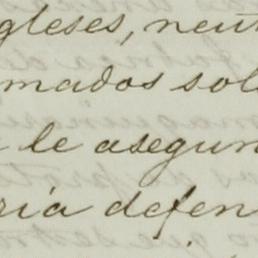 gleses, neut
mados sol
le asegun
ria defen